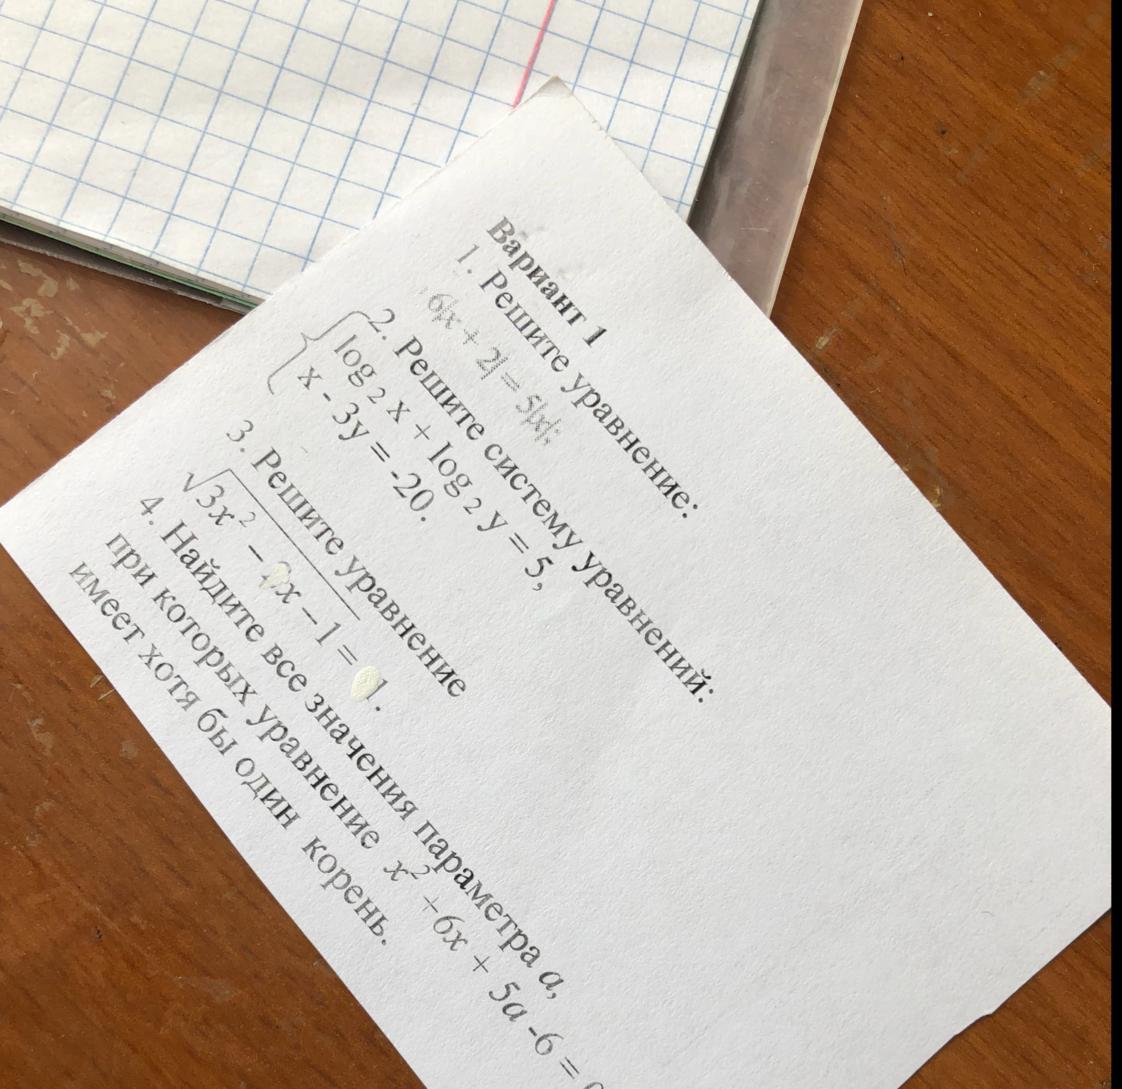 Вариант 1
1. Решите уравнение:
6|x + 2| = 5|x|;
2. Решите систему уравнений:
log 2 x + log 2 y = 5,
x - 3y = -20.
3. Решите уравнение
√3x² − x − 1 = 1.
4. Найдите все значения параметра a,
при которых уравнение x² +6x + 5a -6 =
имеет хотя бы один корень.